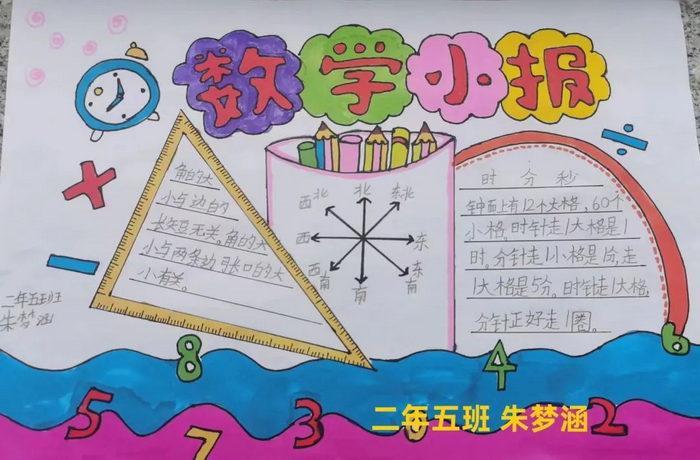 数学小报
角的大
小与边的
长短无关。角的大
小与两条边张口的大
小有关。
西北 北 东北
西 东
西南 南 东南
时 分 秒
钟面上有12个大格,60个
小格。时针走1大格是1
时。分针走1小格是1分,走
1大格是5分。时针走1大格,
分针正好走1圈。
二年五班
朱梦涵
8 4 6
5 7 3 6 2
二年五班 朱梦涵